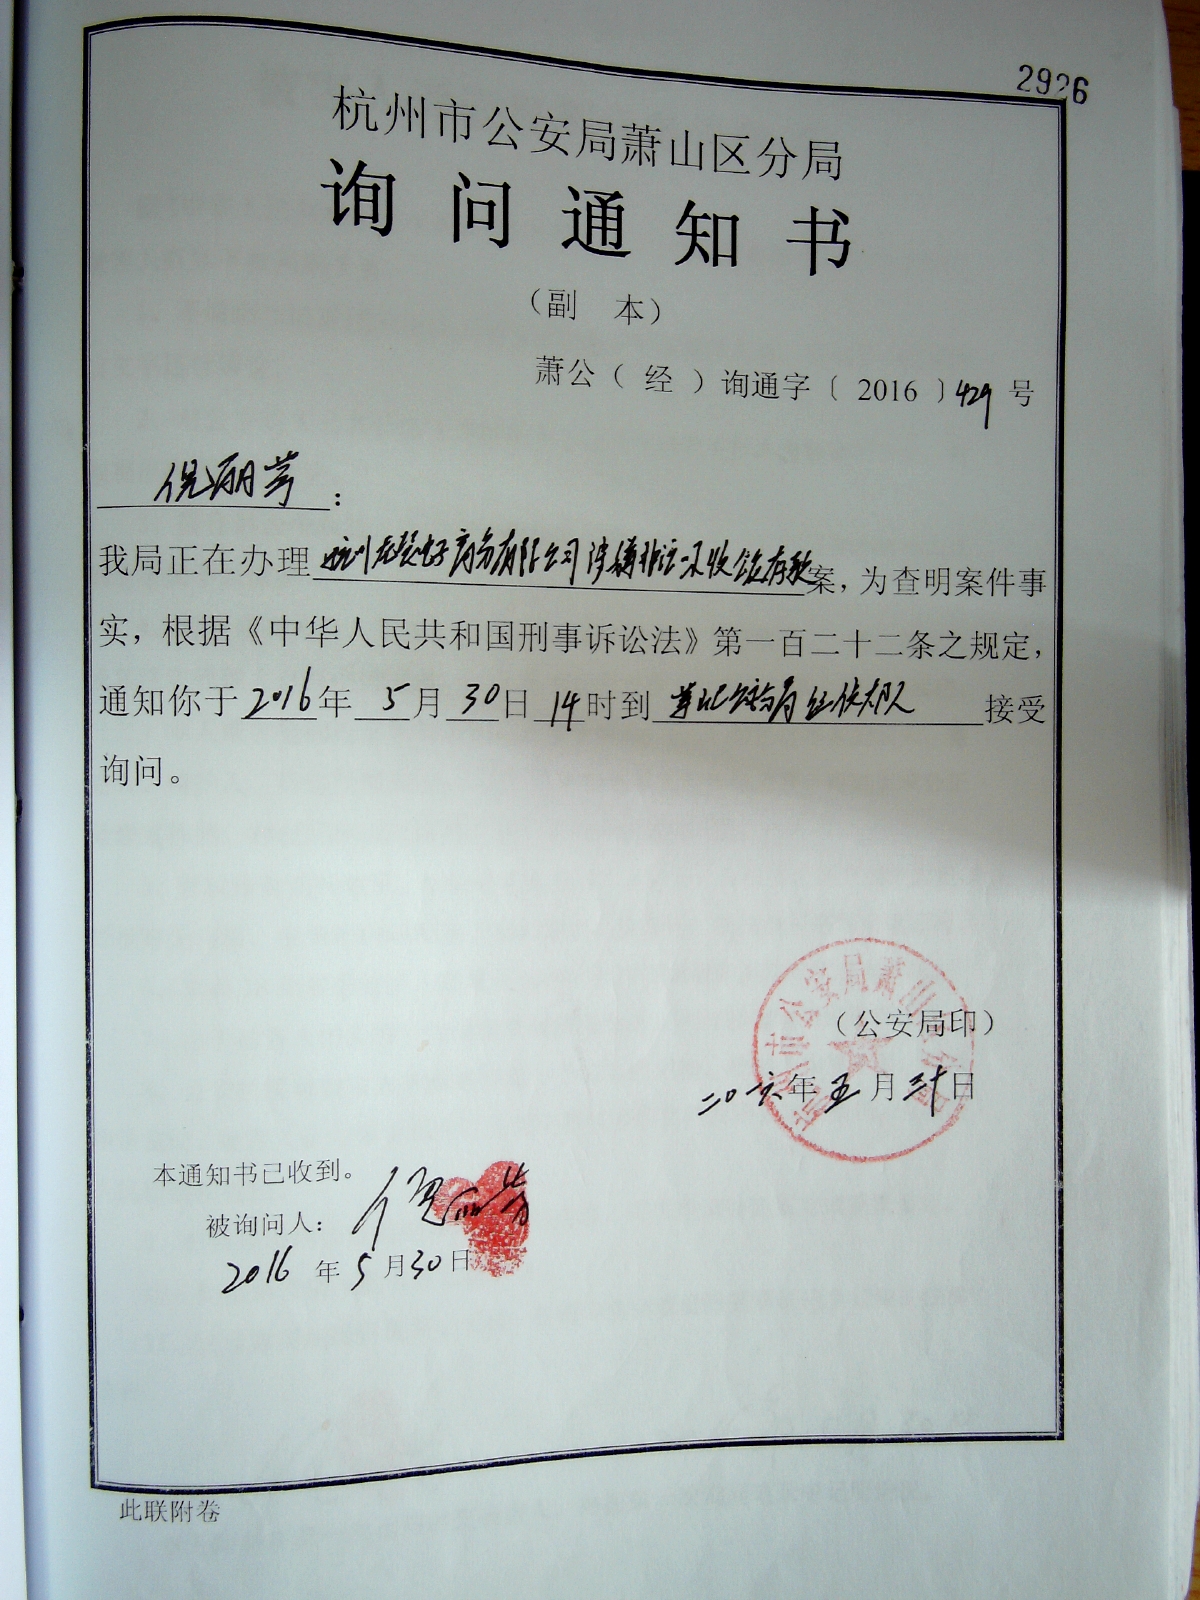 2926
杭州市公安局萧山区分局
询问通知书
（副 本）
萧公（经）询通字〔2016〕429号
倪丽芳：
我局正在办理杭州 商务有限公司涉嫌非法吸收公众存款案，为查明案件事
实，根据《中华人民共和国刑事诉讼法》第一百二十二条之规定，
通知你于2016年5月30日14时到萧山公安分局经侦大队接受
询问。
杭州市公安局萧山区分局
（公安局印）
二〇一六年五月三十日
本通知书已收到。
被询问人：倪丽芳
2016年5月30日
此联附卷